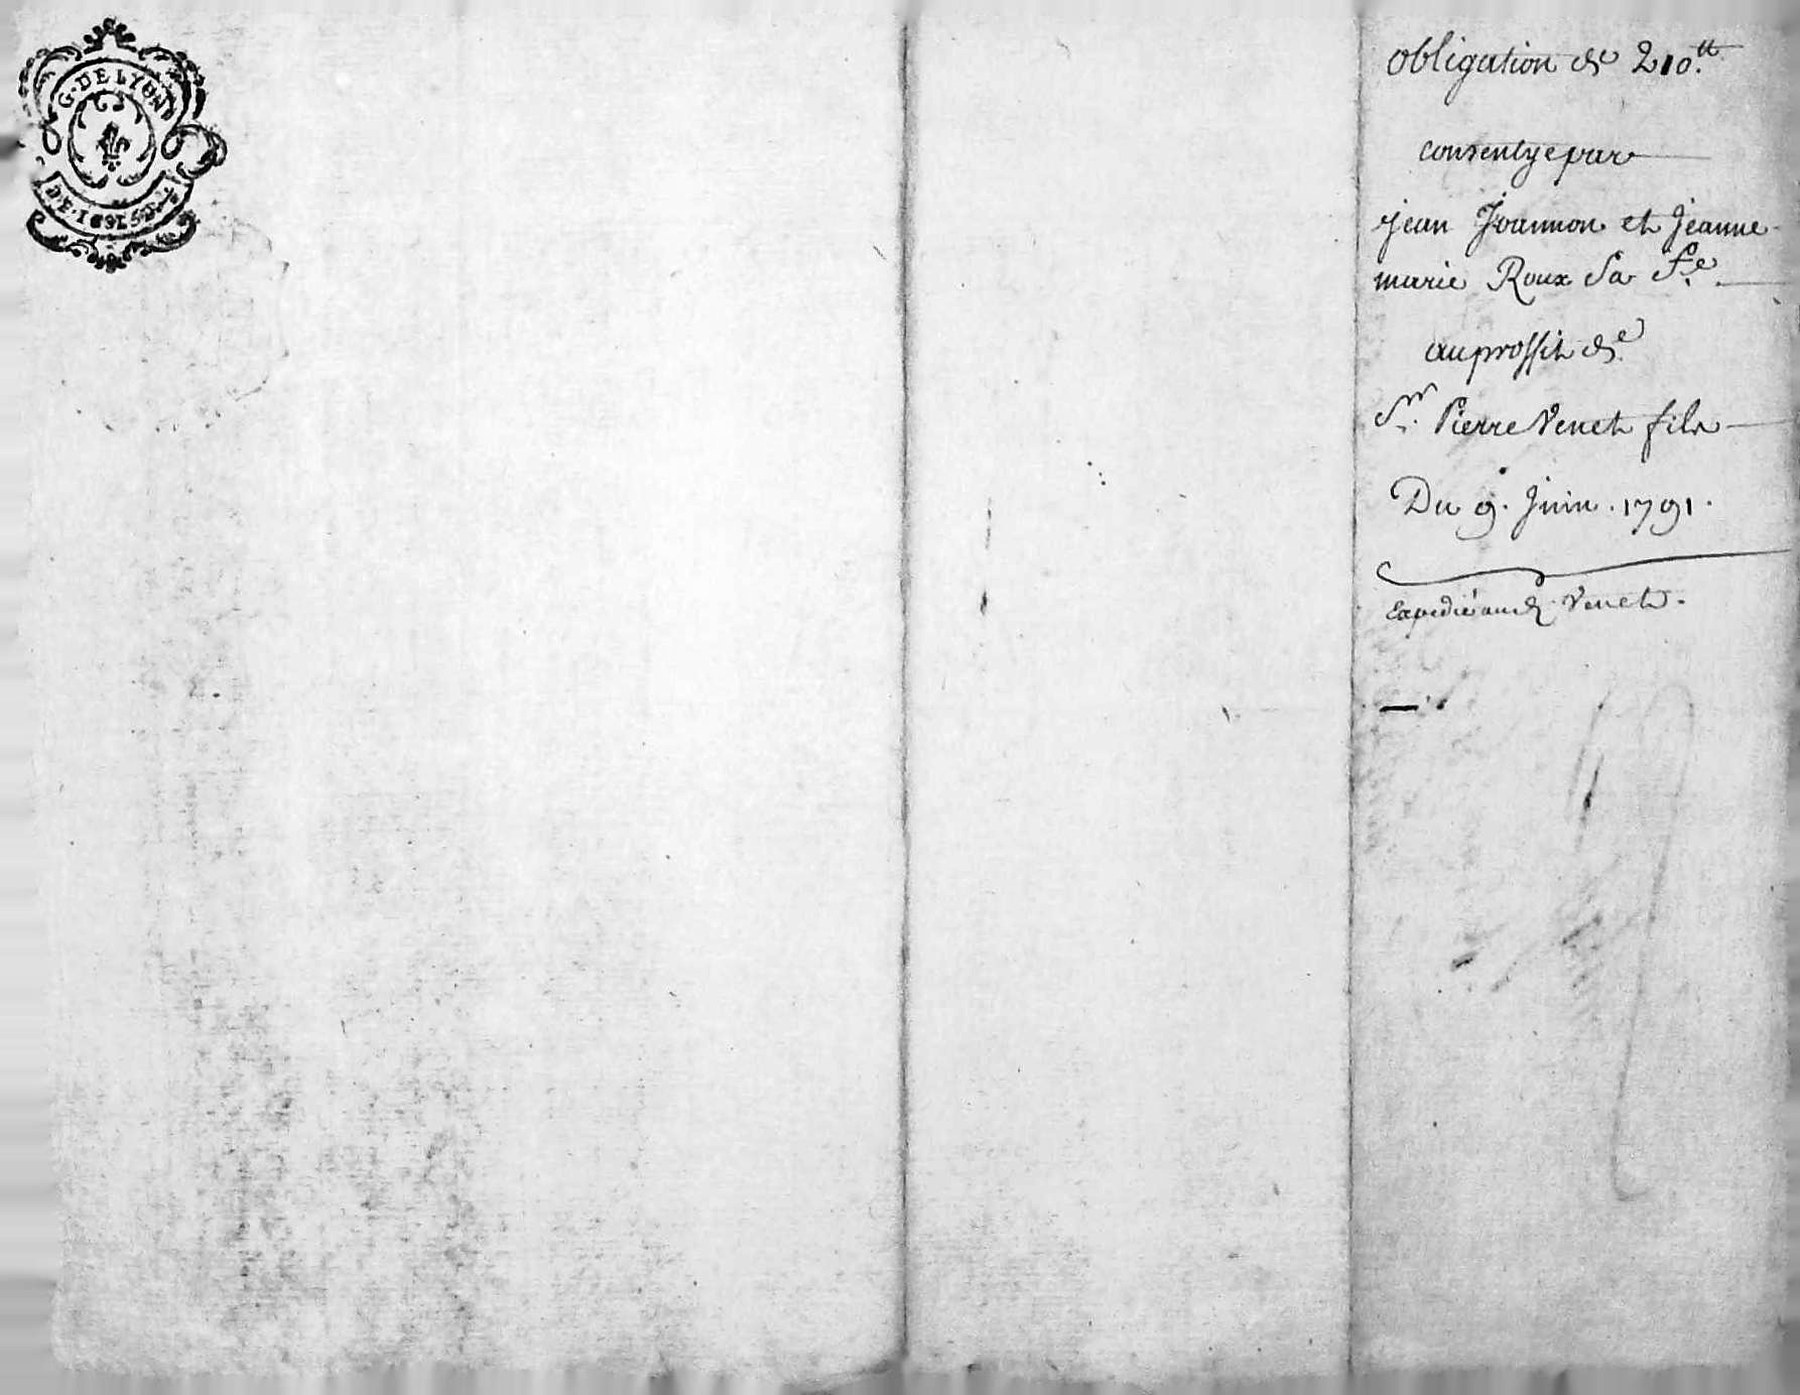 G. DE LYON
obligation de 210.tt
consentye par
jean Joannon et Jeanne
marie Roux sa fe.
au proffit de
Sr. Pierre Venet fils
Du 9. Juin. 1791.
Expedié aud. Venet.